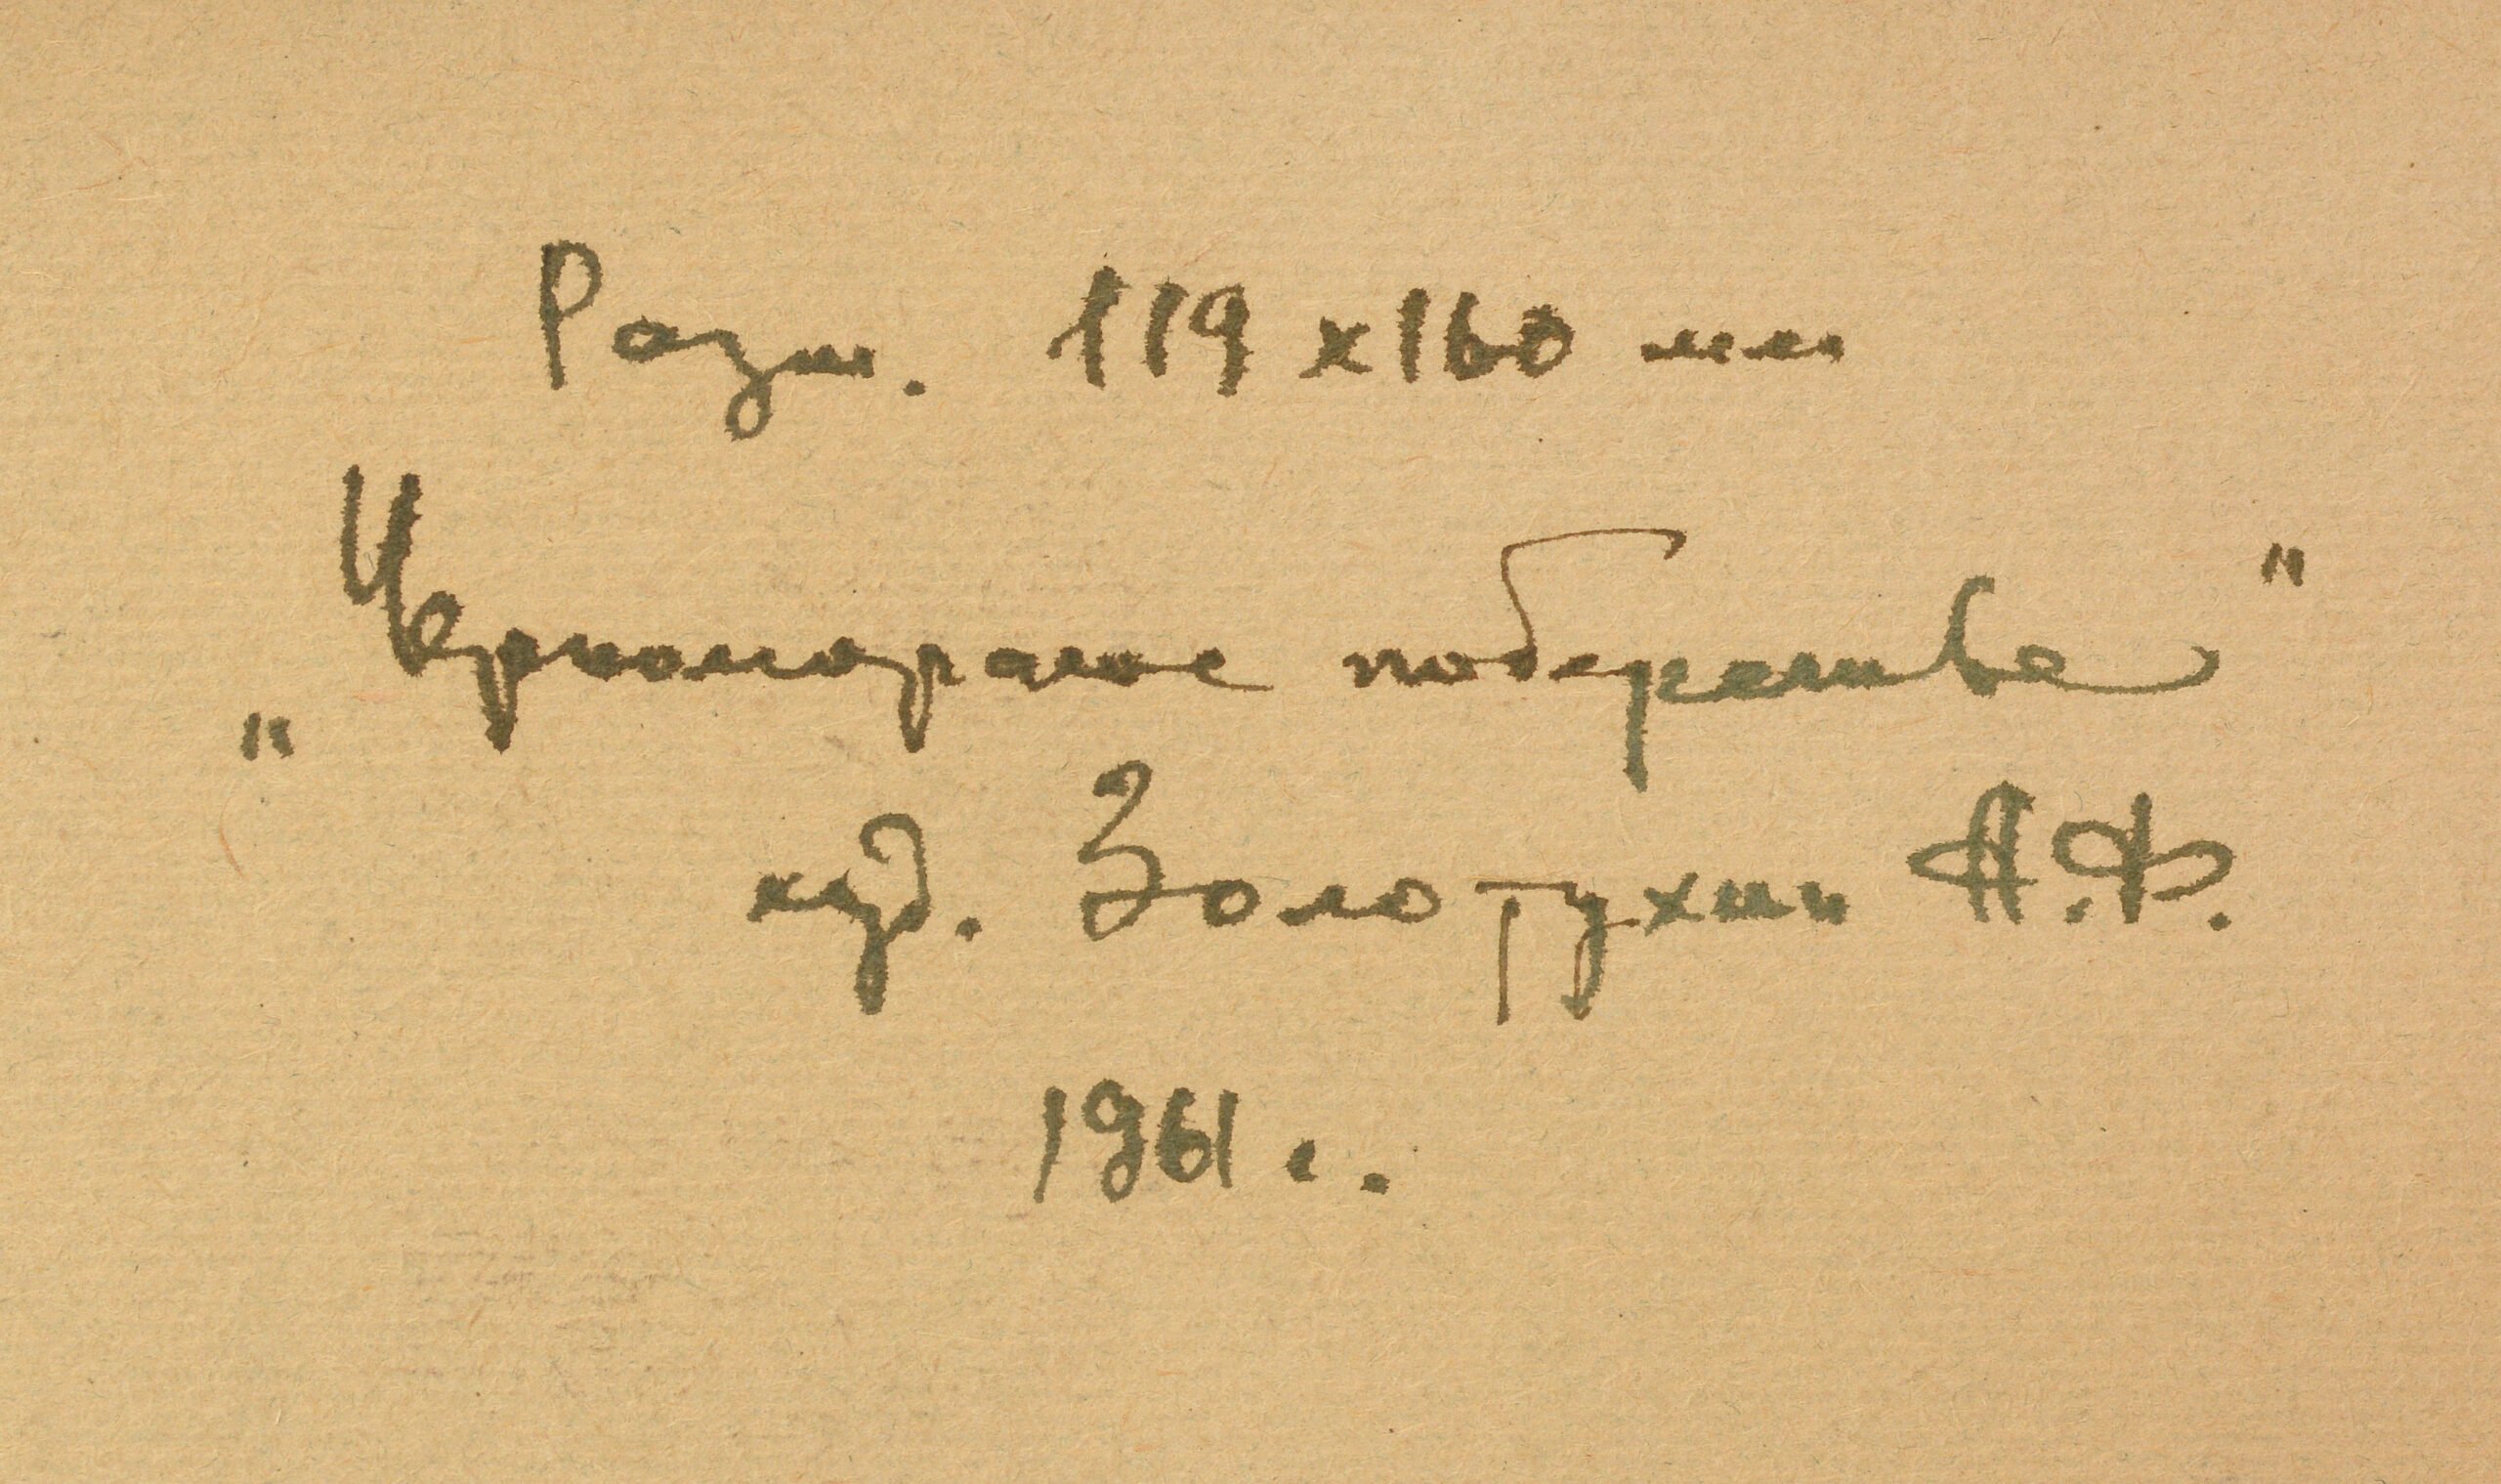 Разм. 119 x 160 мм
„Черноморское побережье"
худ. Золотухин А.Ф.
1961 г.